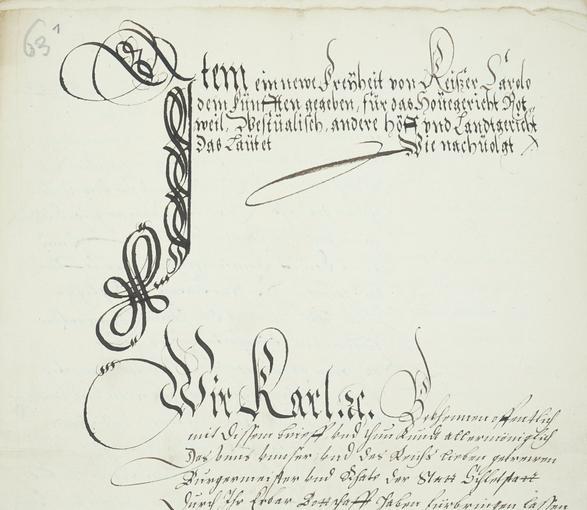 63
Item ein newe Freyheit von Keißer Carolo
dem Fünfften gegeben, für das Houegericht Rot„
weil, Westüalisch, andere Höff vnd Landtgericht
Das Lautet Wie nachuolgt
Wir Karl. ꝛc. Bekhennen offentlich
mit dissem brieff vnd thun kundt allermöniglich
Das vnns vnnser vnd des Reichs lieben getrewen
Burgermeister vnd Rhate der Statt Schletstatt
durch Ihr Erbar Bottschafft haben fürbringen lassen